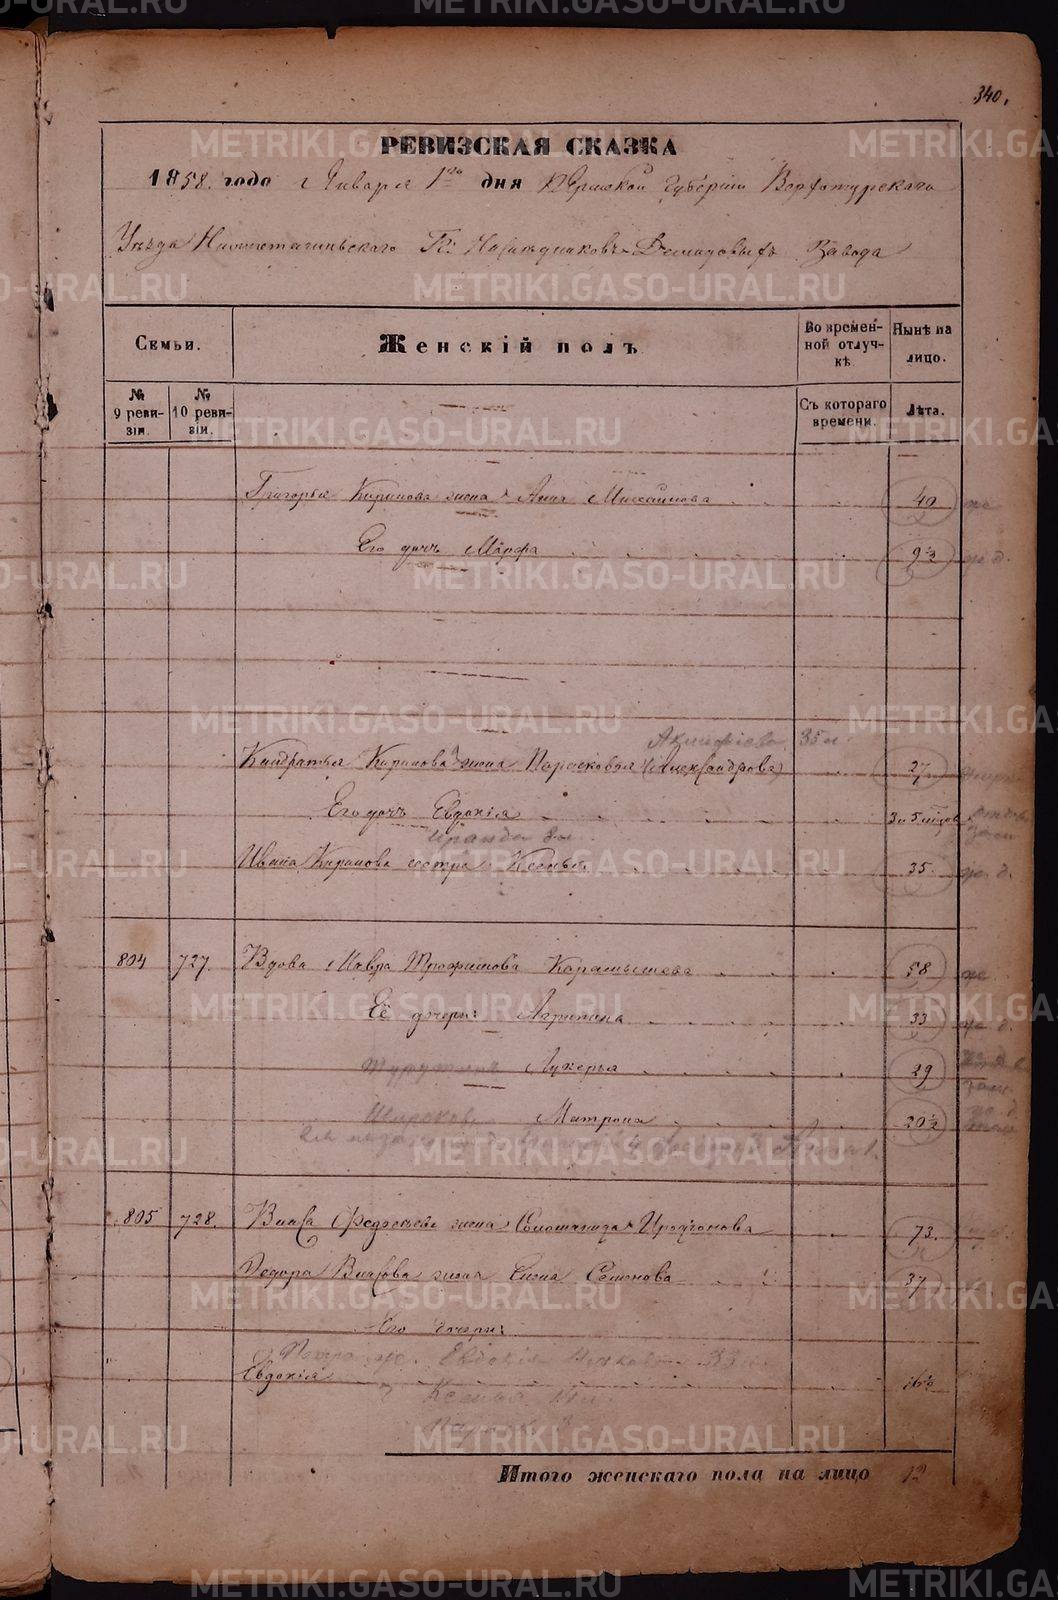 340.
РЕВИЗСКАЯ СКАЗКА
1858. года Января 1го дня Пермской Губернии Верхотурскаго
Уѣзда Нижнетагильскаго Гг. Наслѣдниковъ Демидовыхъ Завода
Семьи.
Женскій полъ
Во времен-
ной отлуч-
кѣ
Нынѣ на
лицо.
№
9 реви-
зіи.
№
10 реви-
зіи.
Съ котораго
времени.
Лѣта.
Григорья Кирилова жена Анна Михайлова 40
Его дочь Марфа 9½
35 л
Кондратья Кирилова жена Парасковья (Александрова) 27
Его дочь Евдокія 3 и 5 мѣсяц.
Ивана Кирилова сестра Ксенья 35
804 727. Вдова Мавра Трофимова Карамышева 58
Её дочери: Агрипина 33
Лукерья 29
Матрона 20½
805 728. Власа Федосѣева жена Соломанида Иродіонова 73.
Федора Власова жена Елена Семенова 37
Его дочери:
Петра же. Евдокія 33 л.
Евдокія 16½
Ксенья
Итого женскаго пола на лицо 12
METRIKI.GASO-URAL.RU